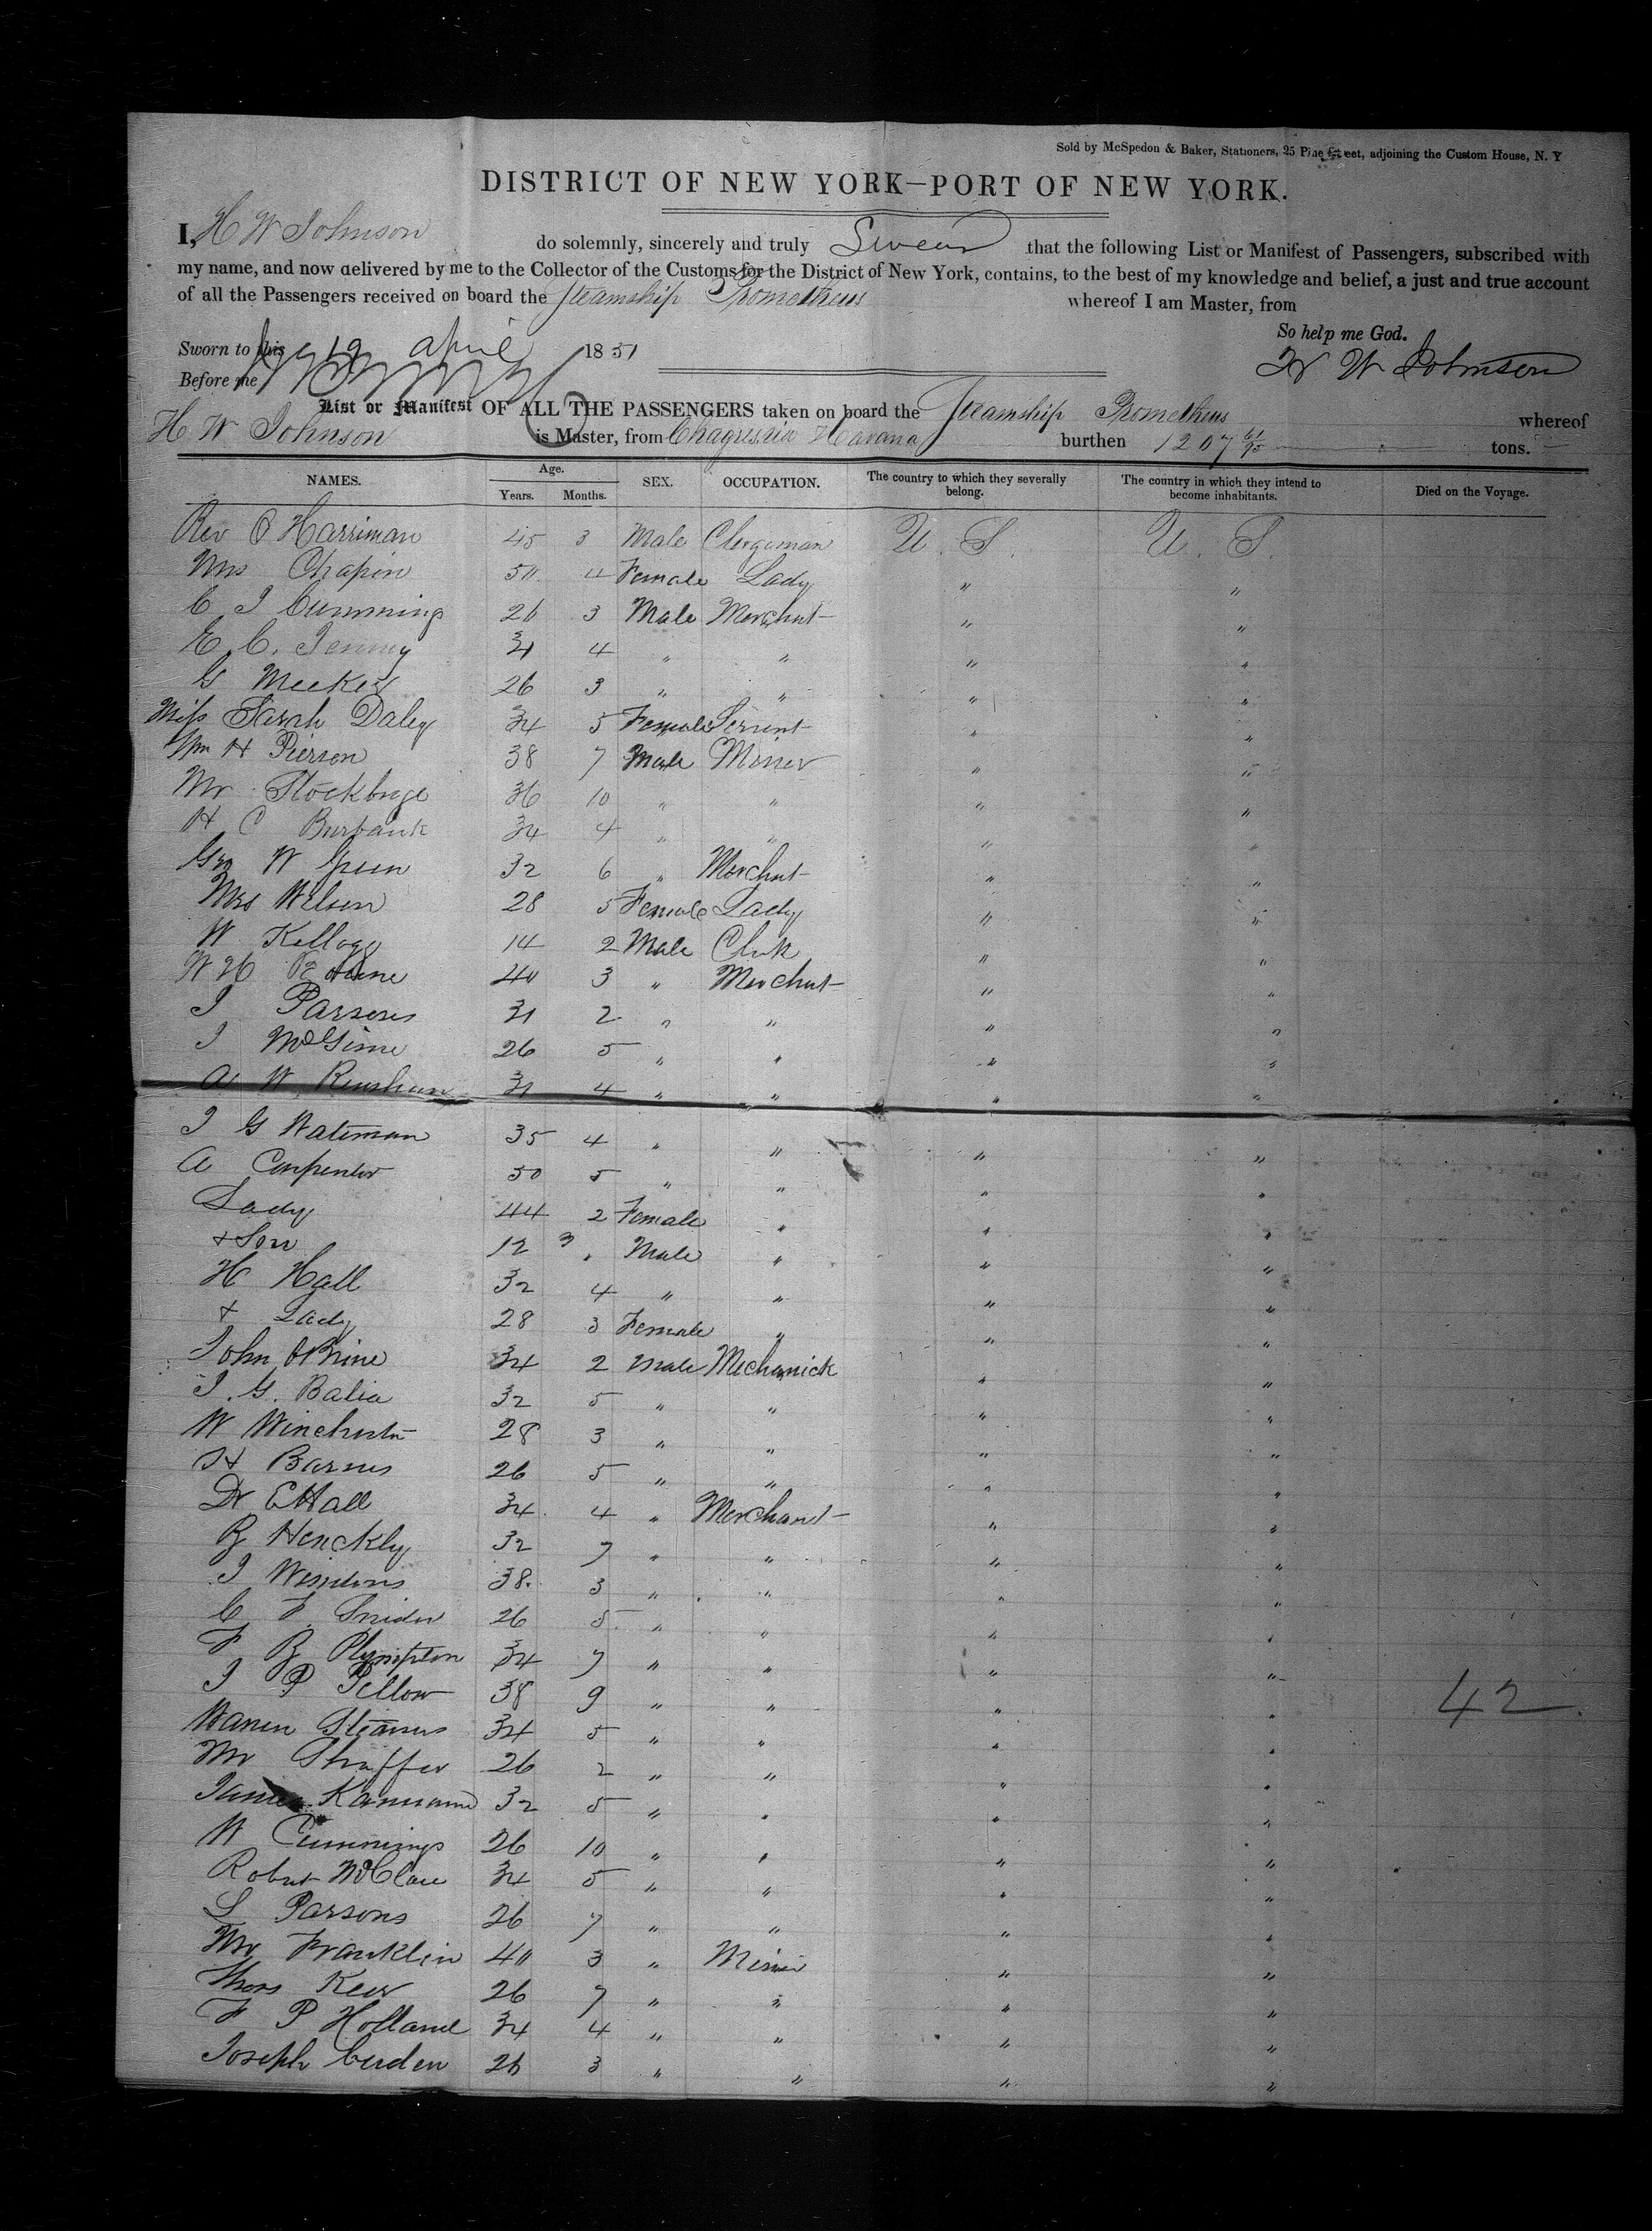 Sold by McSpedon & Baker, Stationers, 25 Pine Street, adjoining the Custom House, N. Y
DISTRICT OF NEW YORK—PORT OF NEW YORK.
I, H W Johnson do solemnly, sincerely and truly Swear that the following List or Manifest of Passengers, subscribed with
my name, and now delivered by me to the Collector of the Customs for the District of New York, contains, to the best of my knowledge and belief, a just and true account
of all the Passengers received on board the Steamship Prometheus whereof I am Master, from
So help me God.
Sworn to this 19 April 1851
H W Johnson
Before me
List or Manifest OF ALL THE PASSENGERS taken on board the Steamship Prometheus whereof
H W Johnson is Master, from Chagres via Havana burthen 1207 61/95 tons.
NAMES. Age. Years. Months. SEX. OCCUPATION. The country to which they severally belong. The country in which they intend to become inhabitants. Died on the Voyage.
Rev Harriman 45 3 Male Clergeman U. S. U. S.
Mrs Chapin 50 4 Female Lady " "
C J Cumming 26 3 Male Merchnt " "
E. C. Jenny 31 4 " " " "
G Meeker 26 3 " " " "
Miss Sarah Daley 34 5 Female Servent " "
Wm H Pierson 38 7 Male Miner " "
Mr Stockbrige 36 10 " " " "
H C Burbank 34 4 " " " "
Geo W Green 32 6 " Merchnt " "
Mrs Wilson 28 5 Female Lady " "
W Kellogg 14 2 Male Clerk " "
W H 40 3 " Merchnt " "
J Parsons 31 2 " " " "
J 26 5 " " " "
A W Renshaw 31 4 " " " "
J G Waterman 35 4 " " " "
A Carpenter 50 5 " " " "
Lady 44 2 Female " " "
+ Son 12 3 " Male " " "
H Hall 32 4 " " " "
+ Lady 28 3 Female " " "
John OBrine 34 2 Male Mechanick " "
J. G. Balia 32 5 " " " "
W Winchester 28 3 " " " "
H Barnes 26 5 " " " "
Dr E Hall 34 4 " Merchant " "
B Henckly 32 7 " " " "
J 38 3 " " " "
C F. Snider 26 5 " " " "
F B Plympton 34 7 " " " "
J P Pellow 38 9 " " " " 42
Warren Stearns 34 5 " " " "
Mr Shaffer 26 2 " " " "
James 32 5 " " " "
W Cummings 26 10 " " " "
Robert McClare 34 5 " " " "
S Parsons 26 7 " " " "
Mr Franklin 40 3 " Miner " "
Thos Kew 26 7 " " " "
F P Holland 34 4 " " " "
Joseph Curden 26 3 " " " "